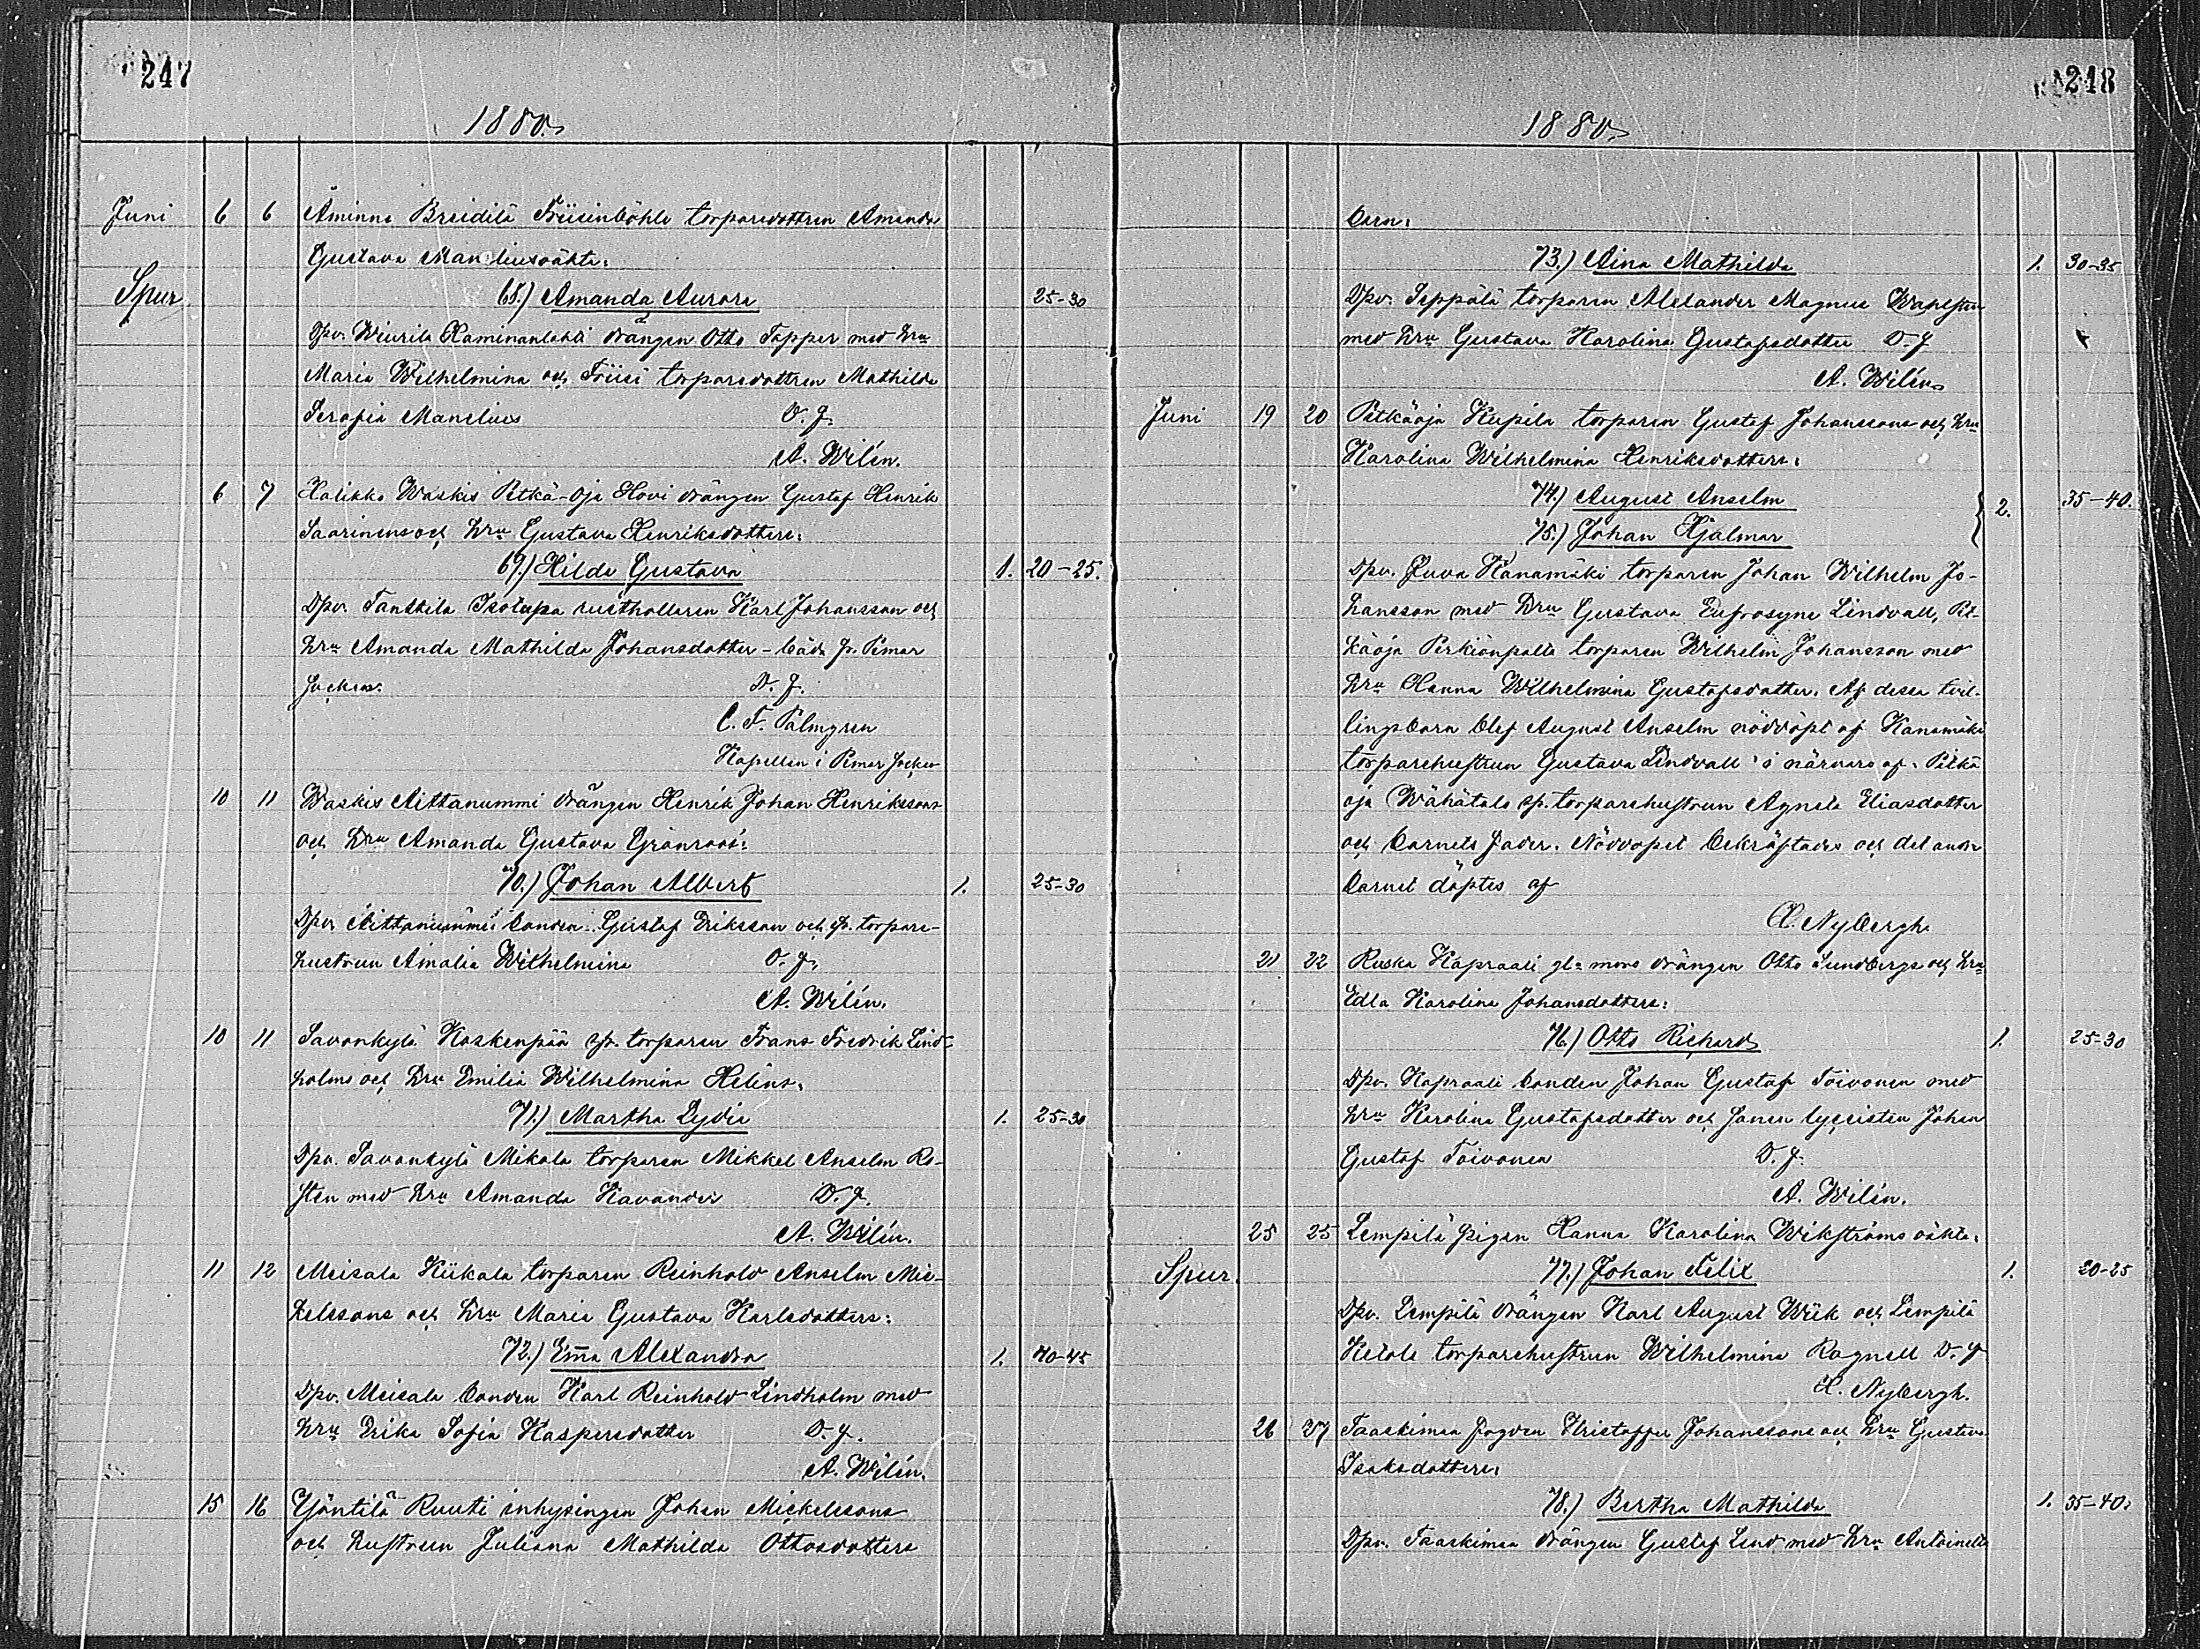 247
1880
Juni 6 6 Åminne Breidilä Friisinböhle torparedottren Amanda
Gustava Manliusoäkta:
Spur
68.) Amanda Aurora 25-30
Dpv. Wiurila Kaminanlahti drängen Otto Tapper med hru
Maria Wilhelmina och Friisi torparedottren Mathilda
Serafia Manelius D. f.
A. Wilén.
6 7 Halikko Waskis Pitkä-oja Hovi drängen Gustaf Henrik
Saarinens och hru Gustava Henriksdotters:
69.) Hilda Gustava 1. 20-25.
Dpv. Tanskila Isotupa rusthollaren Karl Johansson och
hru Amanda Mathilda Johansdotter - båda fr. Pemar
Socken. D. f.
C. F. Palmgren
Kapellan i Pemar Socken
10 11 Waskis Aittanummi drängen Henrik Johan Henrikssons
och hru Amanda Gustava Grönroos:
70.) Johan Albert 1. 25-30
Dpv. Aittanummi bonden Gustaf Eriksson och sp. torpare-
hustrun Amalia Wilhelmina D. f.
A. Wilén.
10 11 Savonkylä Koskenpää sp. torparen Frans Fredrik Lind-
holms och hru Emilia Wilhelmina Heléns.
71.) Martha Lydia 1. 25-30
Dpv. Savonkylä Mikola torparen Mikkel Anselm Ro-
sten med hru Amanda Kavander D. f.
A. Wilén.
11 12 Meisala Kiikala torparen Reinhold Anselm Mic-
kelssons och hru Maria Gustava Karlsdotters:
72.) Em̄a Alexandra 1. 40-45
Dpv. Meisala bonden Karl Reinhold Lindholm med
hru Erika Sofia Kaspersdotter D. f.
A. Wilén.
15 16 Yöntilä Ruuti inhysingen Johan Mickelssons
och hustrun Juliana Mathilda Ottosdotters
248
1880
barn:
73.) Aina Mathilda 1. 30-35
Dpv. Seppälä torparen Alexander Magnus Wahlsten
med hru Gustava Karolina Gustafsdotter D. f
A. Wilén
Juni 19 20 Pitkäoja Kupila torparen Gustaf Johanssons och hru
Karolina Wilhelmina Henriksdotters:
74.) August Anselm
2. 35-40.
75.) Johan Hjalmar
Dpv. Juva Kanamäki torparen Johan Wilhelm Jo-
hansson med hru Gustava Eufrosyne Lindvall, Pit-
käoja Pirkiönpalta torparen Wilhelm Johansson med
hru Hanna Wilhelmina Gustafsdotter. Af dessa tvil-
lingsbarn blef August Anselm nöddöpt af Kanamäki
torparehustrun Gustava Lindvall i närvaro af Pitkä
oja Wähätalo sp. torparehustrun Agneta Eliasdotter
och barnets fader. Nöddopet bekräftades och det andra
barnet döptes af
H. Nybergh.
21 22 Ruska Kapraali gl= moro drängen Otto Sundbergs och hru
Edla Karolina Johansdotters:
76.) Otto Richard 1. 25-30
Dpv. Kapraali bonden Johan Gustaf Toivonen med
hru Karolina Gustafsdotter och sonen lyceisten Johan
Gustaf Toivonen D. f.
A. Wilén.
25 25 Lempilä pigan Hanna Karolina Wikströms oäkta:
Spur.
77.) Johan Felix 1. 20-25
Dpv. Lempilä drängen Karl August Wiik och Lempilä
Ketola torparehustrun Wilhelmina Ragnell D. f
H. Nybergh.
26 27 Taaskimaa fogden Kristoffer Johanssons och hru Gustava
Isaksdotters:
78.) Bertha Mathilda 1. 35-40.
Dpv. Taaskimaa drängen Gustaf Lind med hru Antoinette